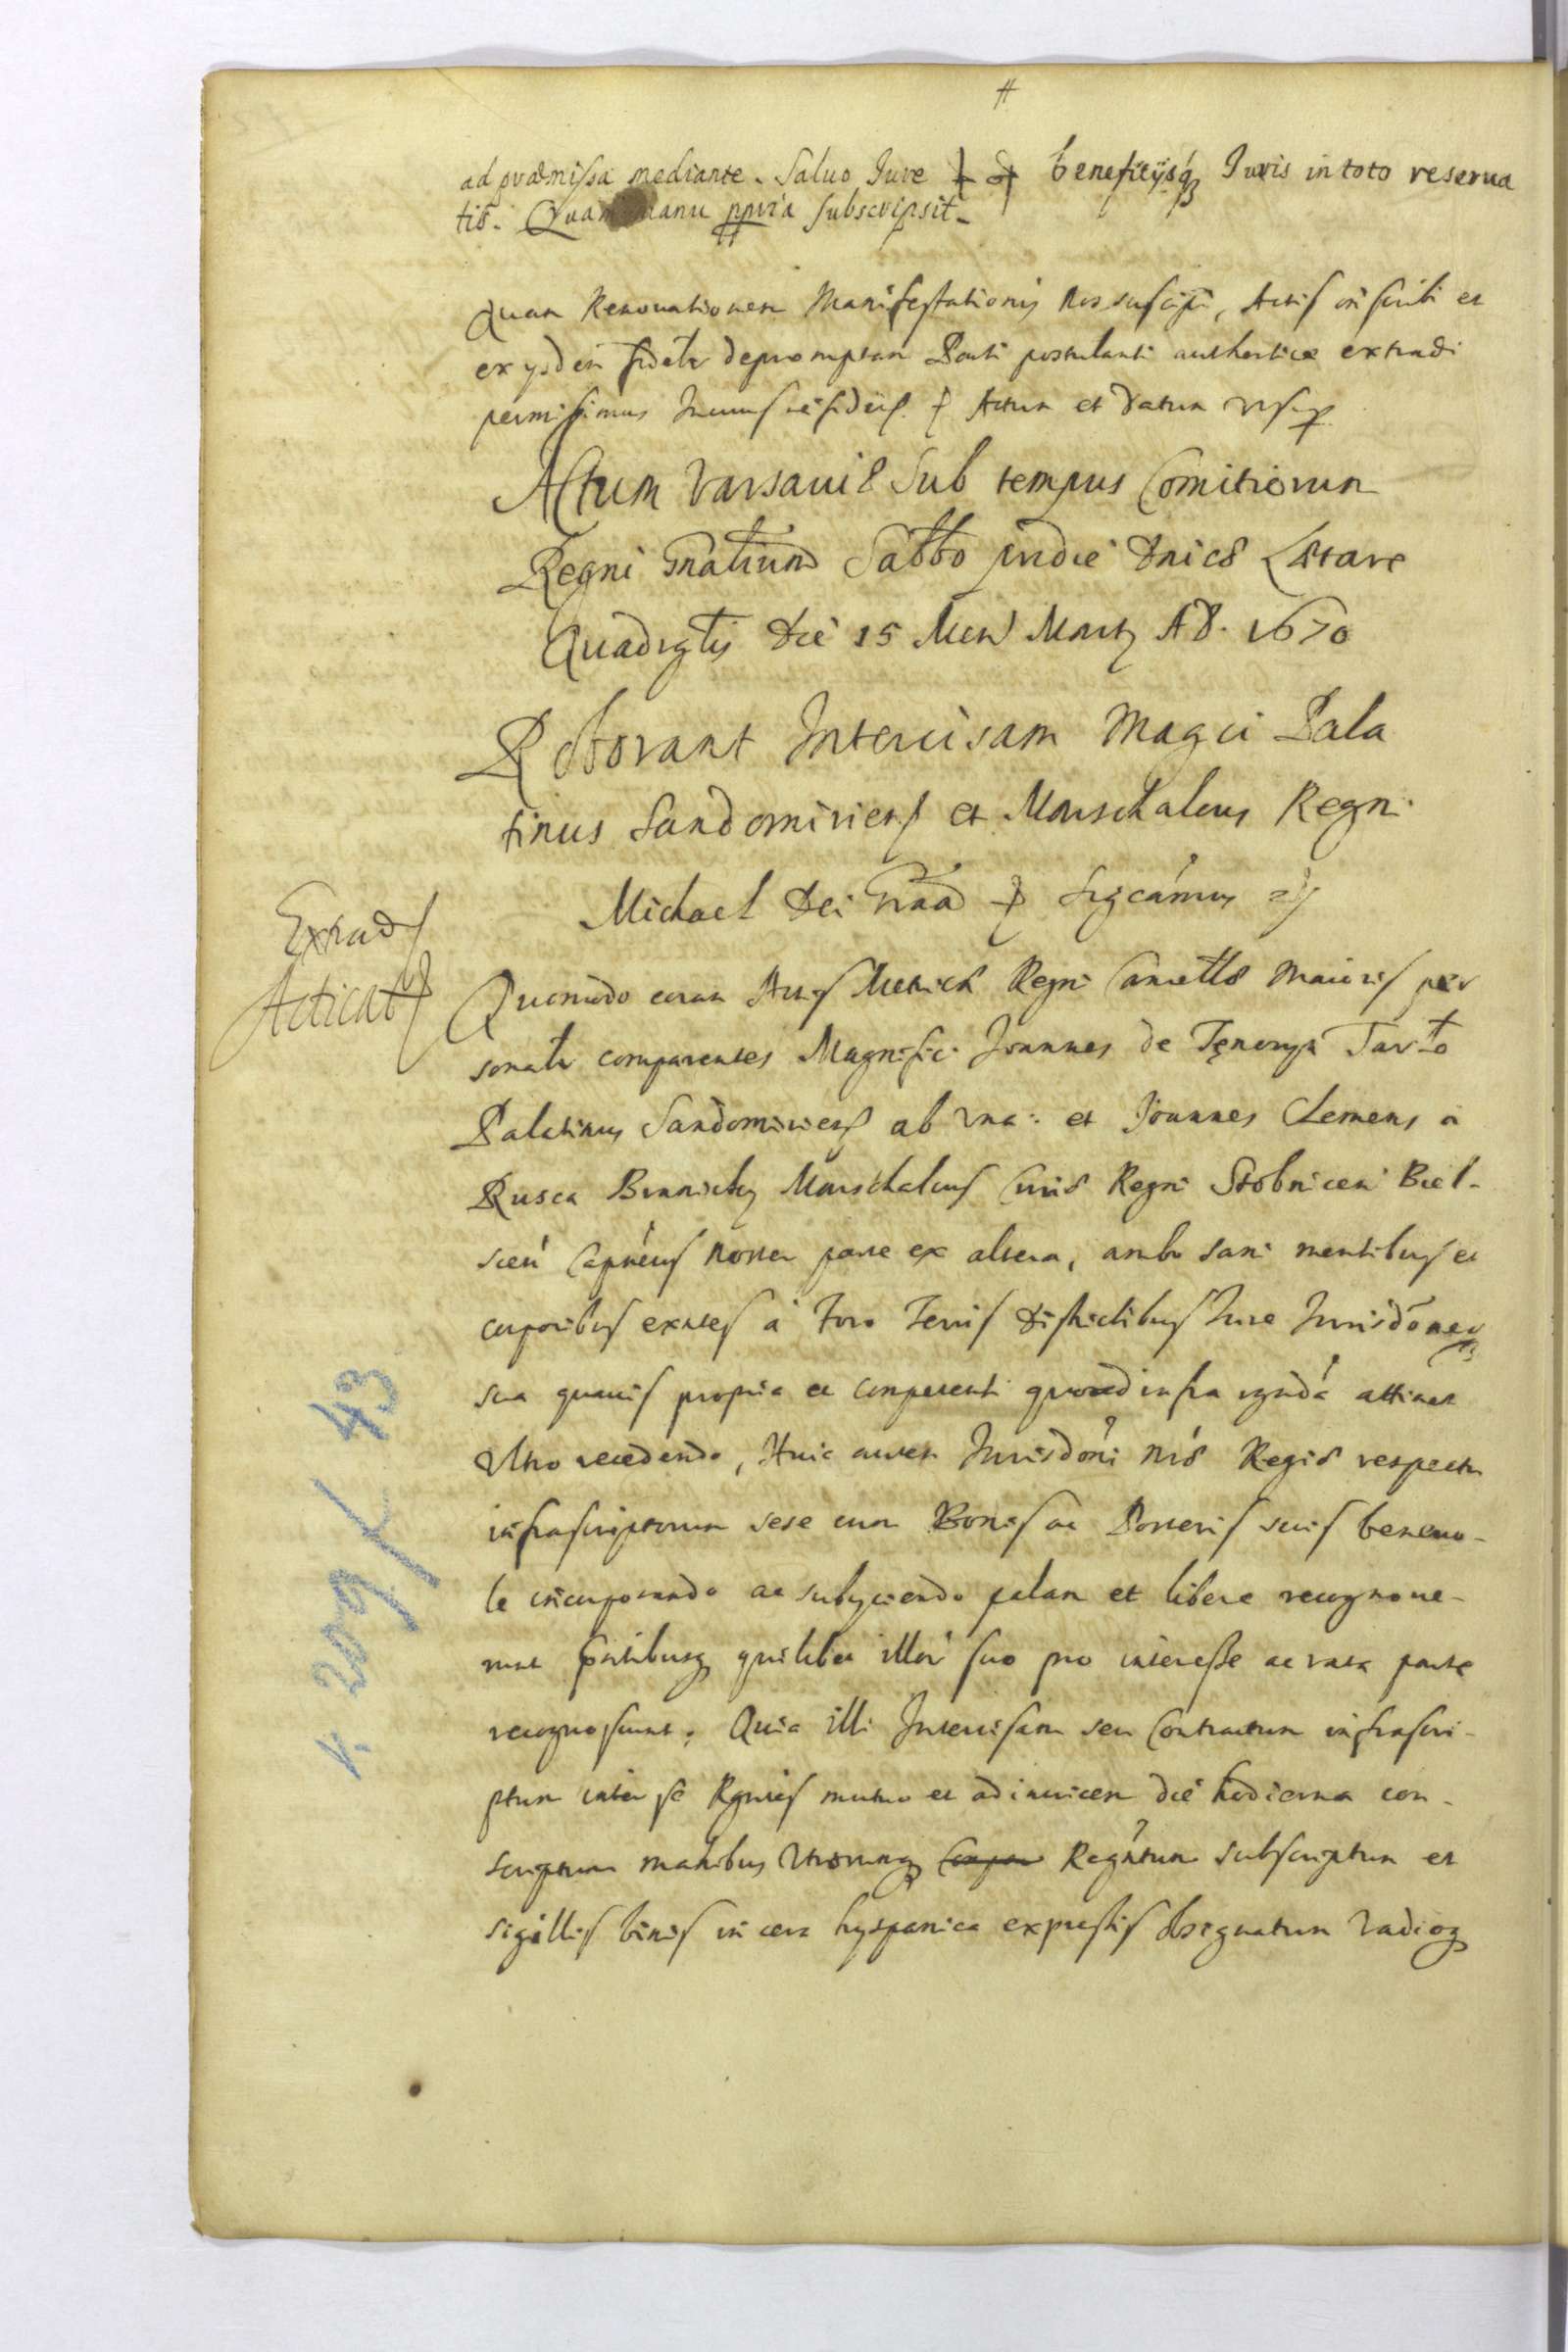 #
ad præmissa mediante. Saluo Jure beneficijsq Juris in toto reserua
tis. Quam manu ppria subscripsit.
Quam Renouationem Manifestationis Nos suscipi, Actis inscribi et
ex ijsdem fideltr depromptam Parti postulanti authentice extradi
permisimus In cuius rei fidem. Actum et Datum ut supra
Actum Varsauiæ Sub tempus Comitiorum
Regni Gnalium Sabbo pridie Dnicæ Lætare
Quadraglis die 15 Mens Martij A D. 1670
Roborant Intercisam Magci Pala
tinus Sandomiriens et Marschalcus Regni
Michael Dei Graa Sigcamus
Extrad
Acticat
Quomodo coram Actis Metrices Regni Cancellæ Maioris per
sonalr comparentes Magnifici Joannes de Tęnczyn Tarło
Palatinus Sandomiriens ab una: et Joannes Clemens a
Rusca Branicky Marschalcus Curiæ Regni Stobnicen Biel-
scen Capneus noster parte ex altera, ambo sani mentibus et
corporibus extes a Foro Terris Districtibus Jure Jurisdoneq
sua quauis propria et competenti quoad infra rgnda attinet
Vltro recedendo, Huic autem Jurisdoni nræ Regiæ respectu
infrascriptorum sese cum Bonis ac Posteris suis beneuo-
le incorporando ac subijciendo palam et libere recognoue-
runt quilibet illor suo pro interesse ac rata parte
recognoscunt. Quia illi Intercisam seu Contractum infrascri-
ptum inter se Rgntes mutuo et adinuicem die hodierna con-
scriptum manibus Vtrorumq Regntum subscriptum et
sigillis binis in cera hyspanica expressis obsignatum Vadioq
k. 209 / 43